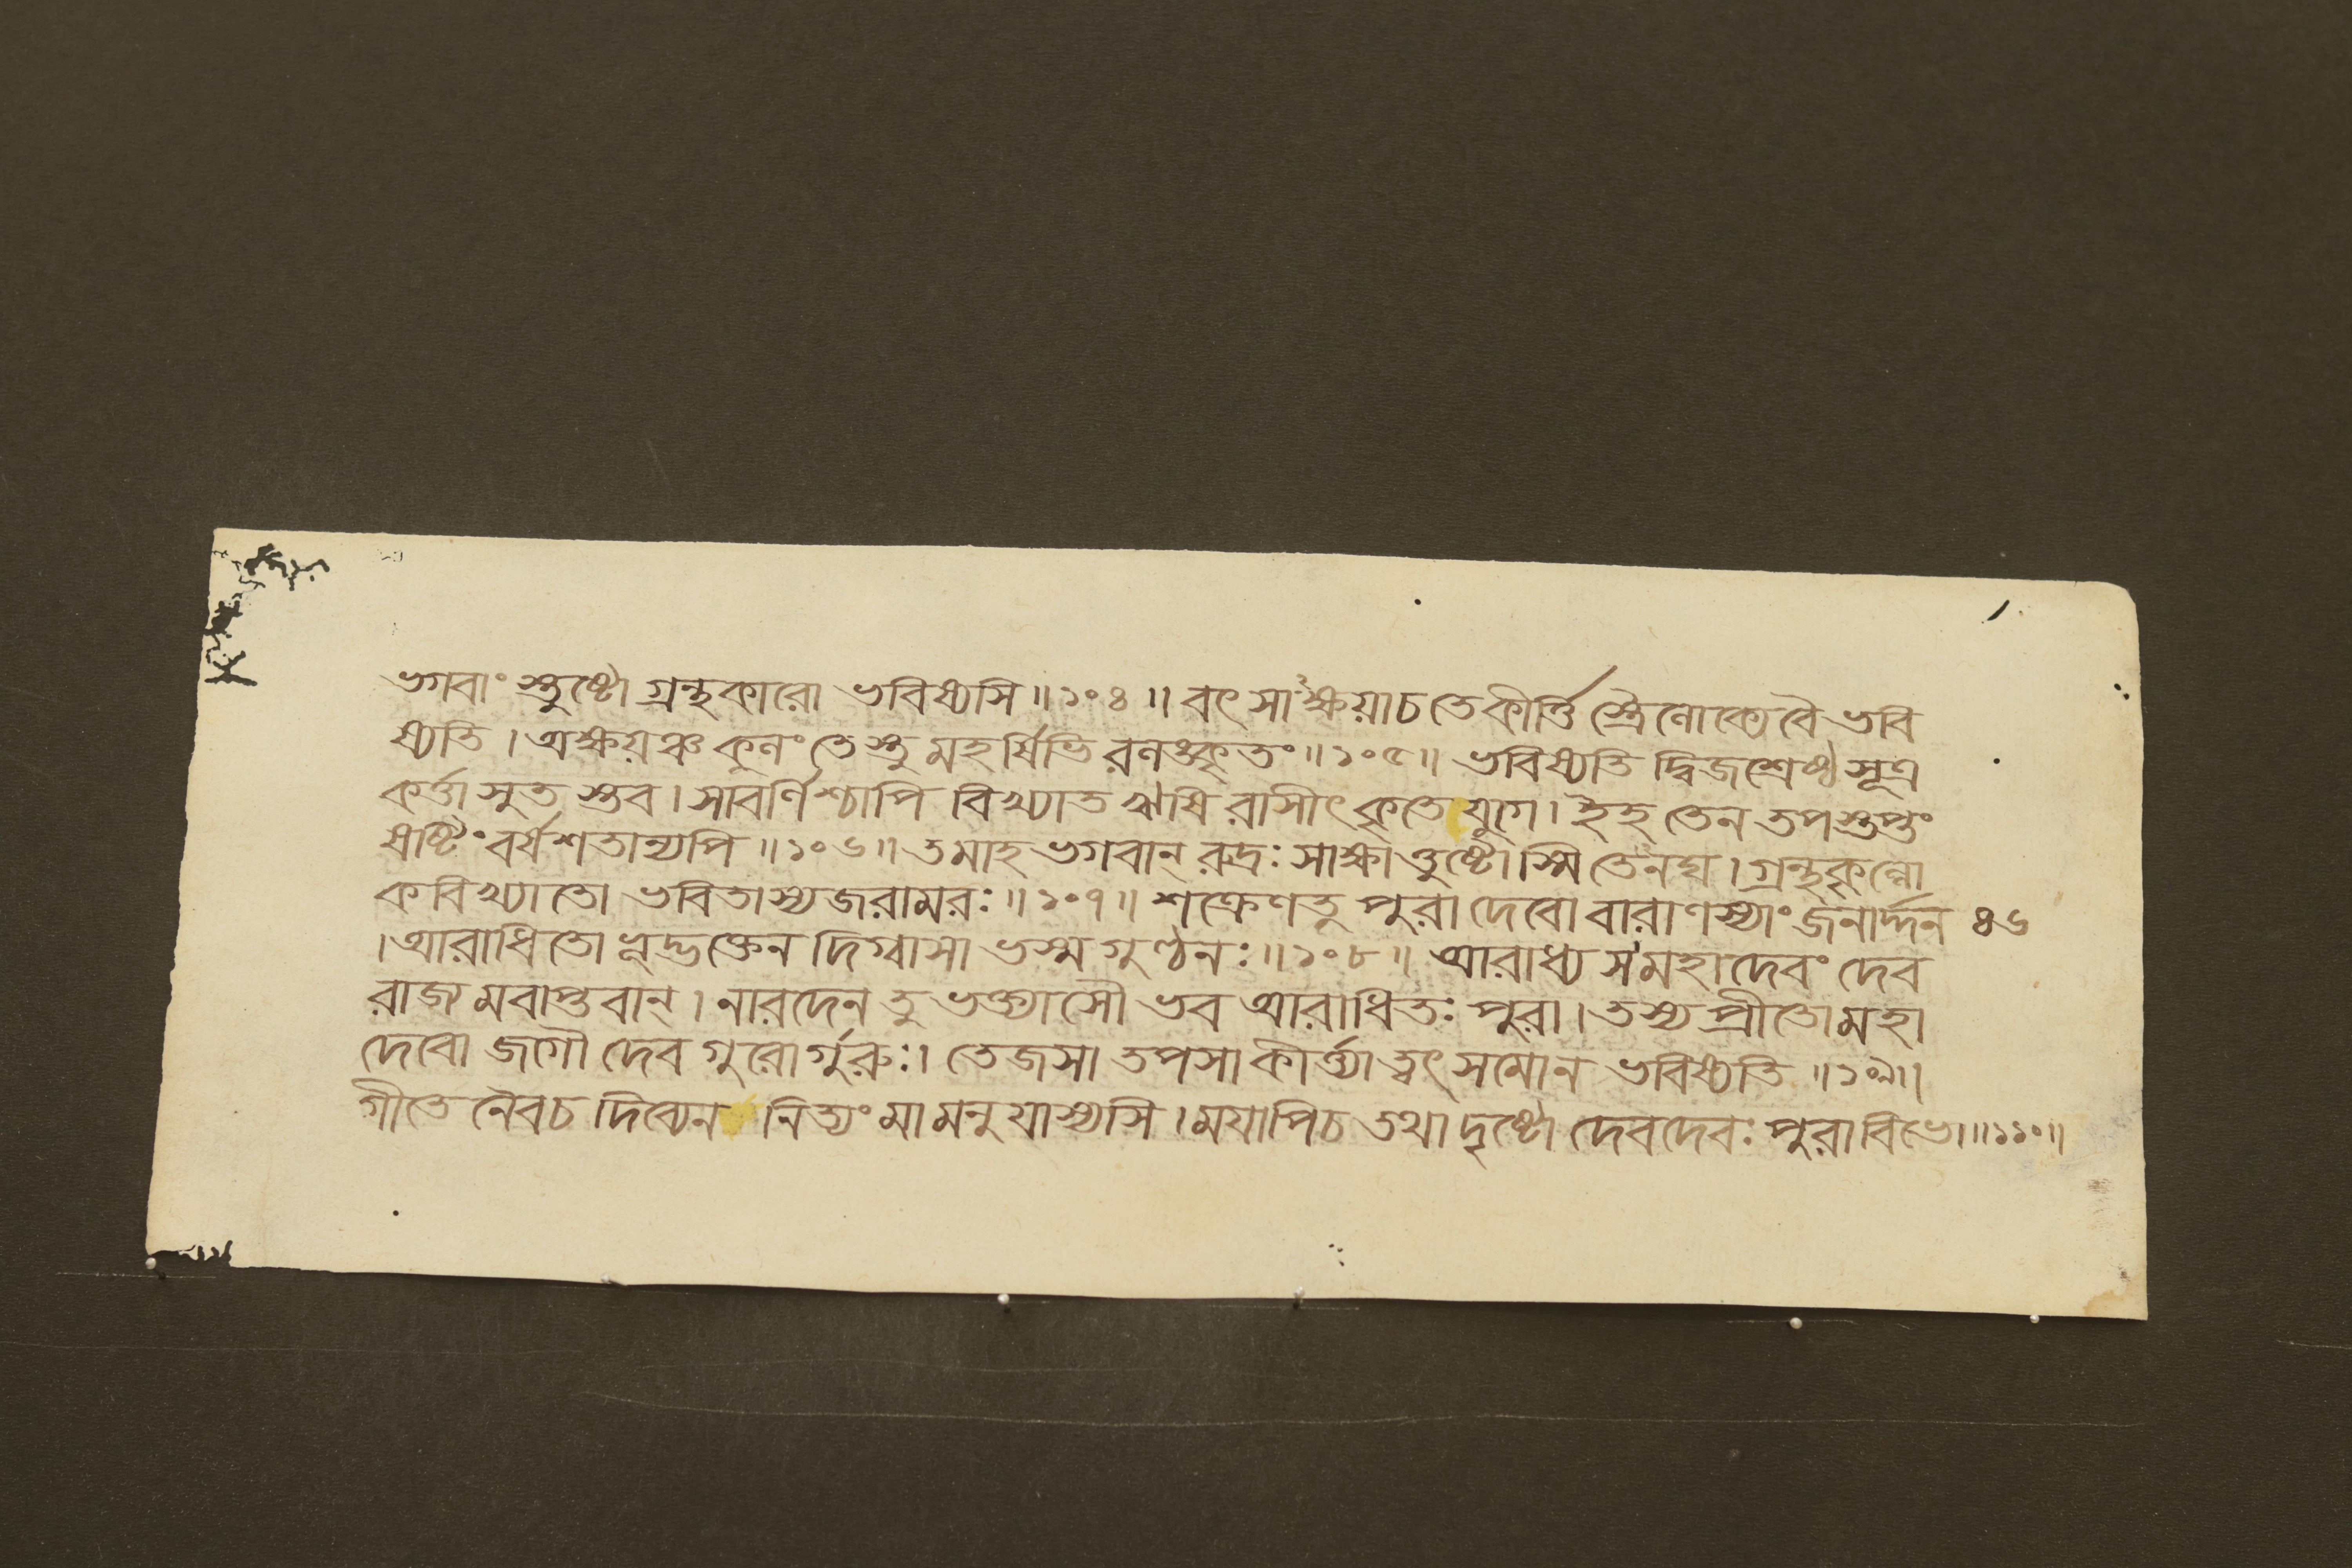 ভগবাং স্তুষ্টো গ্রন্থকারো ভবিষ্যসি ॥ ১০৪ ॥ বৎ সাক্ষয়াচ তে কীর্ত্তি স্ত্রৈলোক্যে বৈ ভবি
ষ্যতি । অক্ষয়ঞ্চ কুলং তেস্তু মহর্ষিভি রলঙ্কৃতং ॥ ১০৫ ॥ ভবিষ্যতি দ্বিজশ্রেষ্ঠ সূত্র
কর্ত্তা সুত স্তব । সাবর্ণিশ্চাপি বিখ্যাত ঋষি রাসীৎ কৃতে যুগে । ইহ তেন তপস্তপ্তং
ষষ্টিং বর্ষশতান্যপি ॥ ১০৬ ॥ তমাহ ভগবান্ রুদ্রঃ সাক্ষাত্তুষ্টোস্মি তেনঘ । গ্রন্থকৃল্লো
ক বিখ্যাতো ভবিতাস্যজরামরঃ ॥ ১০৭ ॥ শক্রেণতু পুরা দেবো বারাণস্যাং জনার্দ্দন ৪৬
। আরাধিতো ভূদ্ভক্তেন দিগ্বাসা ভস্ম গুণ্ঠনঃ ॥ ১০৮ ॥ আরাধ্য স মহাদেবং দেব
রাজ্য মবাপ্তবান্ । নারদেন তু ভক্ত্যাসৌ ভব আরাধিতঃ পুরা । তস্য প্রীতো মহা
দেবো জগৌ দেব গুরোর্গুরুঃ । তেজসা তপসা কীর্ত্ত্যা ত্বৎ সমোন ভবিষ্যতি ॥ ১০৯ ॥
গীতে নৈবচ দিব্যেন নিত্যং মা মনু যাস্যসি । ময়াপিচ তথা দৃষ্টো দেবদেবঃ পুরা বিভো ॥ ১১০ ॥